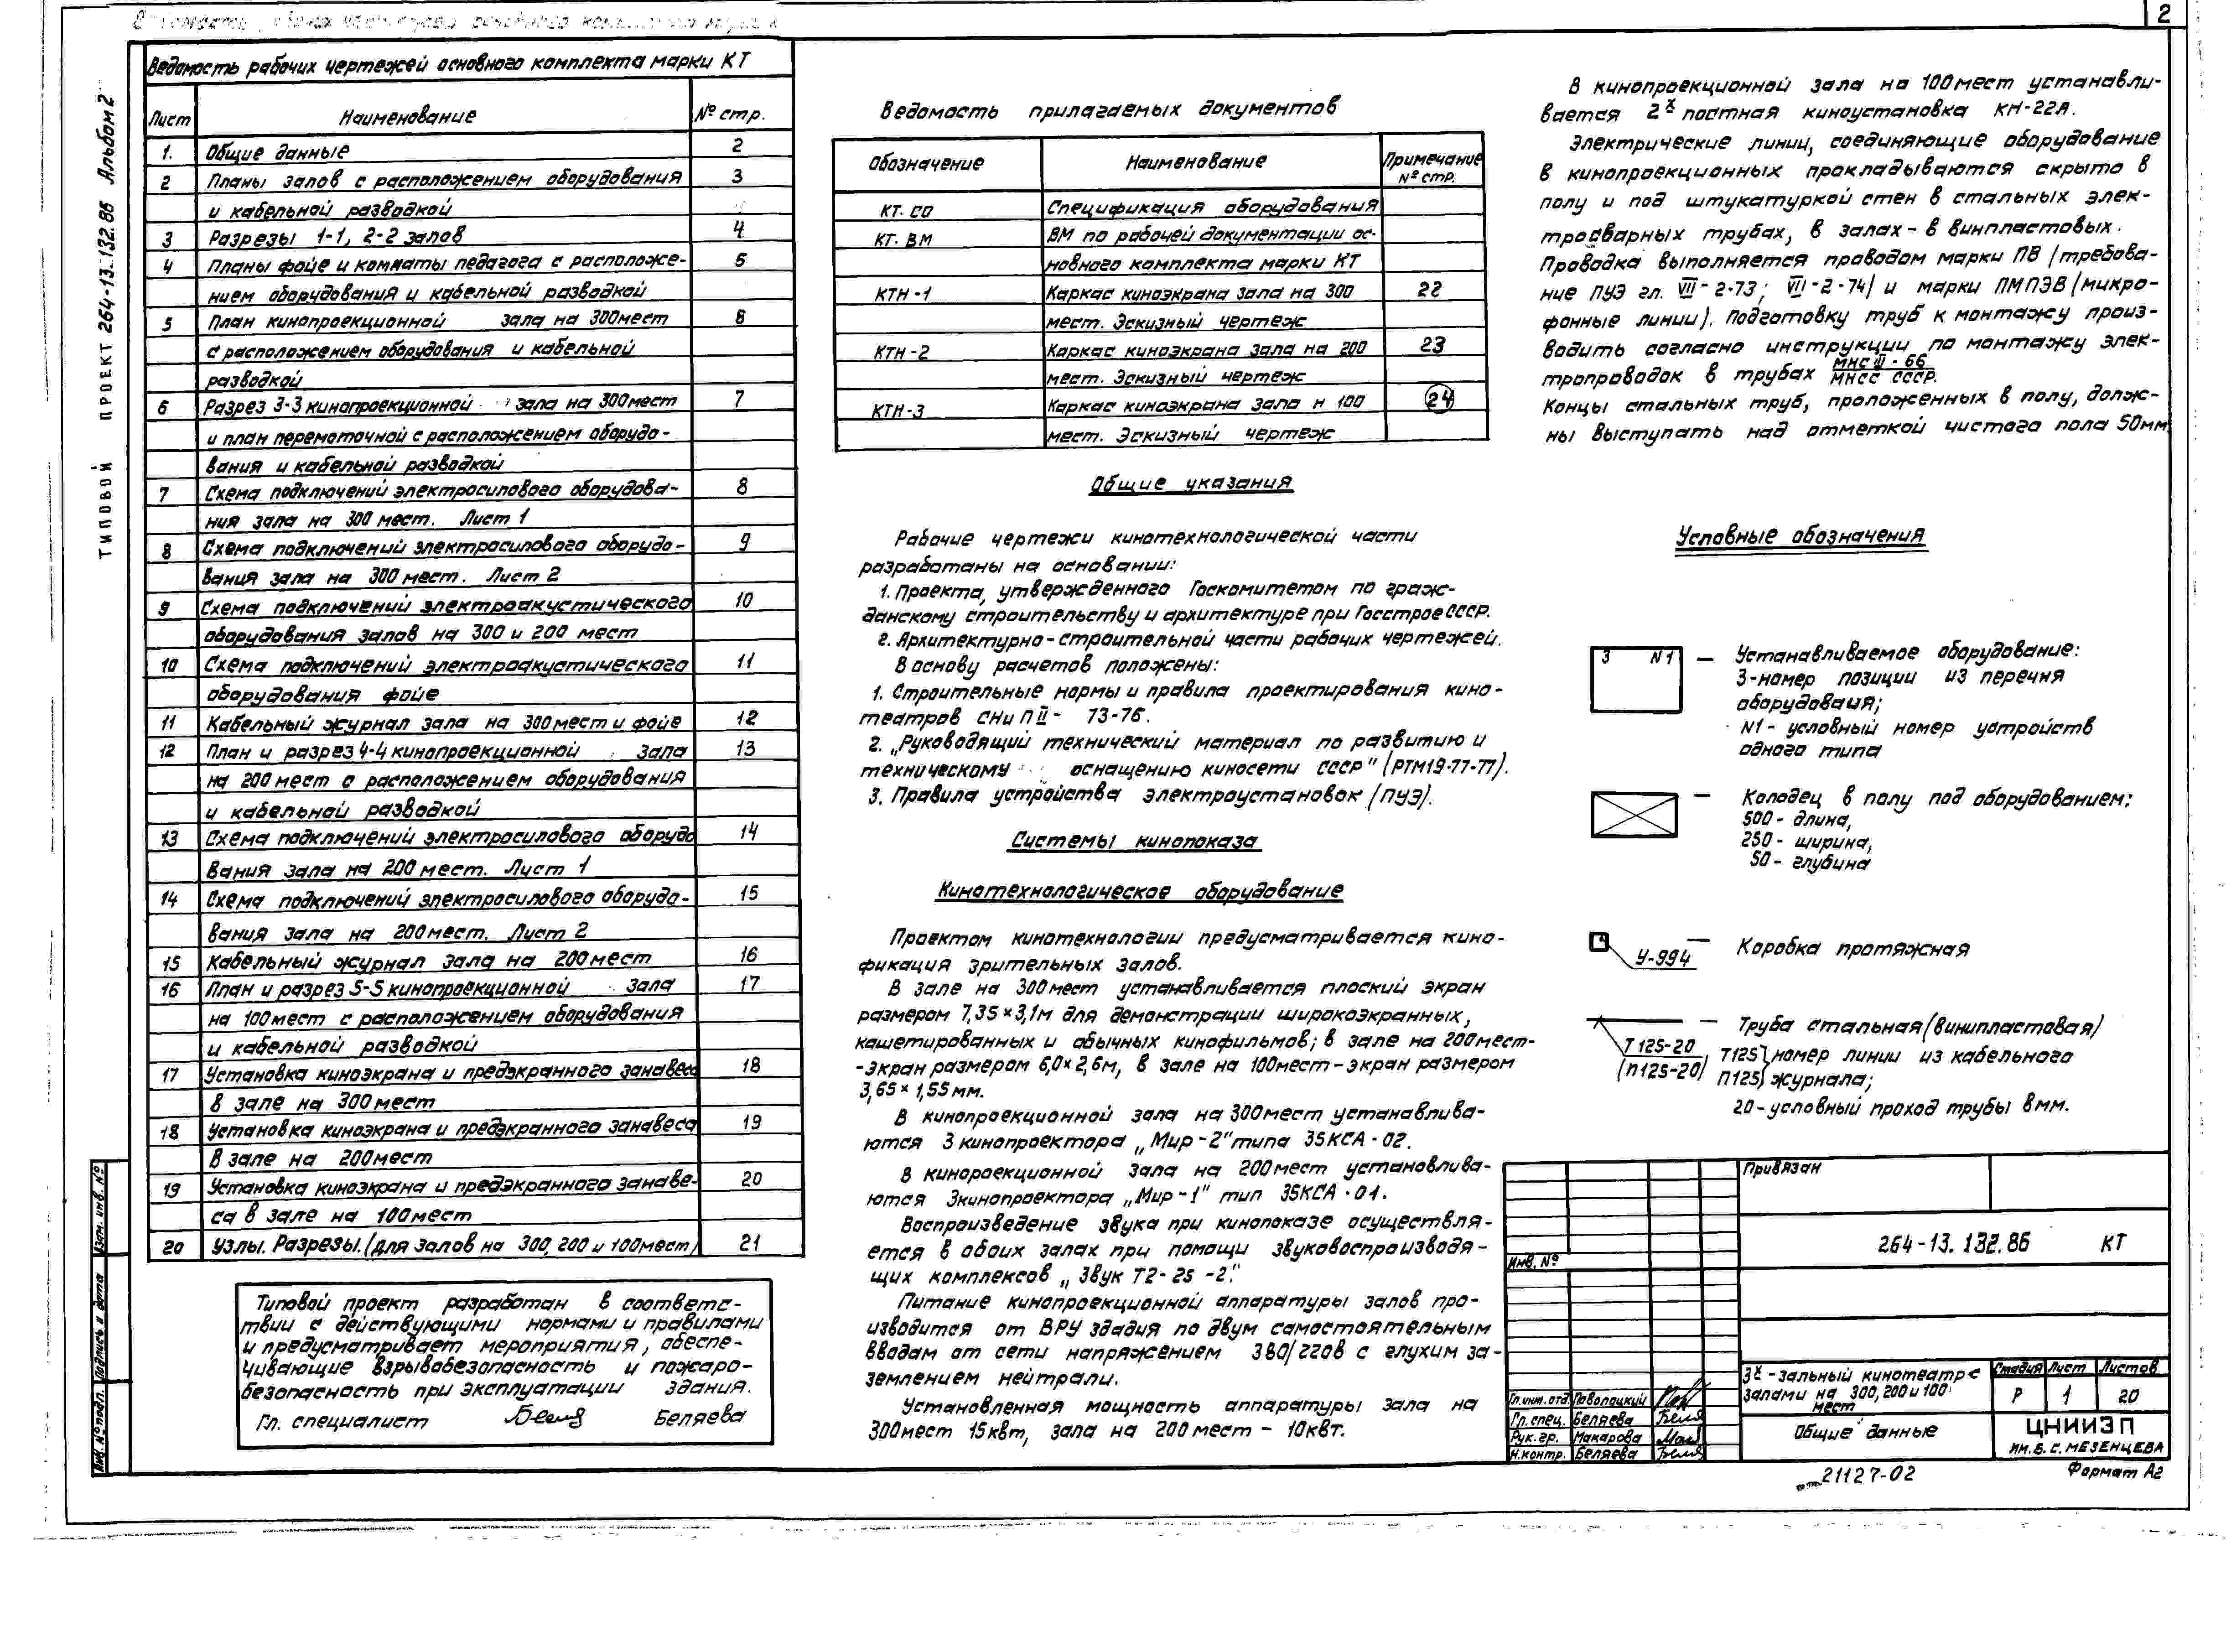 2
Ведомость рабочих чертежей основного комплекта марки КТ
Лист Наименование № стр.
1. Общие данные 2
2 Планы залов с расположением оборудования 3
и кабельной разводкой
3 Разрезы 1-1, 2-2 залов 4
4 Планы фойе и комнаты педагога с расположе- 5
нием оборудования и кабельной разводкой
5 План кинопроекционной зала на 300мест 6
с расположением оборудования и кабельной
разводкой
6 Разрез 3-3 кинопроекционной зала на 300мест 7
и план перемоточной с расположением оборудо-
вания и кабельной разводкой
7 Схема подключений электросилового оборудова- 8
ния зала на 300 мест. Лист 1
8 Схема подключений электросилового оборудо- 9
вания зала на 300 мест. Лист 2
9 Схема подключений электроакустического 10
оборудования залов на 300 и 200 мест
10 Схема подключений электроакустического 11
оборудования фойе
11 Кабельный журнал зала на 300 мест и фойе 12
12 План и разрез 4-4 кинопроекционной зала 13
на 200 мест с расположением оборудования
и кабельной разводкой
13 Схема подключений электросилового оборудо 14
вания зала на 200 мест. Лист 1
14 Схема подключений электросилового оборудо- 15
вания зала на 200 мест. Лист 2
15 Кабельный журнал зала на 200 мест 16
16 План и разрез 5-5 кинопроекционной зала 17
на 100мест с расположением оборудования
и кабельной разводкой
17 Установка киноэкрана и предэкранного занавеса 18
в зале на 300 мест
18 Установка киноэкрана и предэкранного занавеса 19
в зале на 200мест
19 Установка киноэкрана и предэкранного занаве- 20
са в зале на 100мест
20 Узлы. Разрезы. (для залов на 300, 200 и 100мест) 21
Типовой проект разработан в соответс-
твии с действующими нормами и правилами
и предусматривает мероприятия, обеспе-
чивающие взрывобезопасность и пожаро-
безопасность при эксплуатации здания.
Гл. специалист Беляева
ТИПОВОЙ ПРОЕКТ 264-13.132.86 Альбом 2
Взам. инв. №
Подпись и дата
Инв. № подл.
Ведомость прилагаемых документов
Обозначение Наименование Примечание
№ стр.
КТ. СО Спецификация оборудования
КТ. ВМ ВМ по рабочей документации ос-
новного комплекта марки КТ
КТН-1 Каркас киноэкрана зала на 300 22
мест. Эскизный чертеж
КТН-2 Каркас киноэкрана зала на 200 23
мест. Эскизный чертеж
КТН-3 Каркас киноэкрана зала н 100 24
мест. Эскизный чертеж
Общие указания
Рабочие чертежи кинотехнологической части
разработаны на основании:
1. Проекта, утвержденного Госкомитетом по граж-
данскому строительству и архитектуре при Госстрое СССР.
2. Архитектурно-строительной части рабочих чертежей.
В основу расчетов положены:
1. Строительные нормы и правила проектирования кино-
театров СНиП II- 73-76.
2. „Руководящий технический материал по развитию и
техническому оснащению киносети СССР" (РТМ19-77-77).
3. Правила устройства электроустановок (ПУЭ).
Системы кинопоказа
Кинотехнологическое оборудование
Проектом кинотехнологии предусматривается кино-
фикация зрительных залов.
В зале на 300мест устанавливается плоский экран
размером 7,35×3,1м для демонстрации широкоэкранных,
кашетированных и обычных кинофильмов; в зале на 200мест-
-экран размером 6,0×2,6м, в зале на 100мест-экран размером
3,65×1,55мм.
В кинопроекционной зала на 300мест устанавлива-
ются 3 кинопроектора „Мир-2" типа 35КСА-02.
В кинороекционной зала на 200мест установлива-
ются 3кинопроектора „Мир-1" тип 35КСА-01.
Воспроизведение звука при кинопоказе осуществля-
ется в обоих залах при помощи звуковоспроизводя-
щих комплексов „Звук Т2-25-2".
Питание кинопроекционной аппаратуры залов про-
изводится от ВРУ здадия по двум самостоятельным
вводам от сети напряжением 380/220в с глухим за-
землением нейтрали.
Установленная мощность аппаратуры зала на
300мест 15квт, зала на 200мест - 10квт.
В кинопроекционной зала на 100мест устанавли-
вается 2х постная киноустановка КН-22А.
Электрические линии, соединяющие оборудование
в кинопроекционных прокладываются скрыто в
полу и под штукатуркой стен в стальных элек-
тросварных трубах, в залах-в винпластовых.
Проводка выполняется проводом марки ПВ (требова-
ние ПУЭ гл. VII-2-73; VII-2-74) и марки ПМПЭВ (микро-
фонные линии). Подготовку труб к монтажу произ-
водить согласно инструкции по монтажу элек-
тропроводок в трубах МНС III-66
МНСС СССР.
Концы стальных труб, проложенных в полу, долж-
ны выступать над отметкой чистого пола 50мм
Условные обозначения
3 N1 — Устанавливаемое оборудование:
3-номер позиции из перечня
оборудования;
N1- условный номер устройств
одного типа
— Колодец в полу под оборудованием:
500- длина,
250- ширина,
50- глубина
У-994 — Коробка протяжная
— Труба стальная (винипластовая)
Т125-20 Т125} номер линии из кабельного
(П125-20) П125} журнала;
20-условный проход трубы в мм.
Привязан
Инв. №
264-13.132.86 КТ
3х-зальный кинотеатр с
залами на 300,200 и 100
мест
Стадия Лист Листов
Р 1 20
Гл.инж.отд Поволоцкий
Гл.спец. Беляева
Рук.гр. Макарова
Н.контр. Беляева
Общие данные
ЦНИИЗП
ИМ. Б. С. МЕЗЕНЦЕВА
21127-02
Формат А2